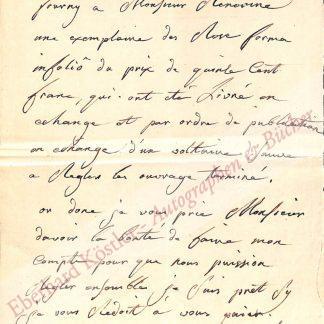 fourny a Monsieur Renouvine
une exemplaire des Rose forma
infoliô du prix de quinze Cent
franc, qui ont été Livré en
echange et par ordre de publication
en echange d'un voltaire
a Regler les ouvrage terminé.
or donc je vous prie Monsieur
davoir la bonté de faire mon
Compte pour que nous puission
Regler ensemble je Suis prêt Sy
je vous Redoit a vous paier
Eberhard Köstler - Autographen & Bücher